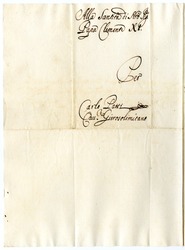 Alla Santità di Nro Sig.re
Papa Clemente XI.
Per
Carlo
Cav. Gierosolimitano